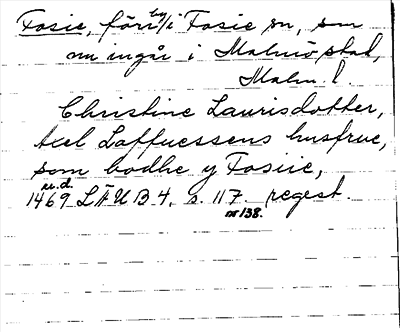 Fosie, förr by i Fosie sn, som
nu ingår i Malmö stad,
Malm. l.
Christine Laurisdotter,
Axel Loffuessens husfrue,
som bodhe y Fosiie,
u.d.
1469 LÄUB 4, s. 117. regest.
nr 138.